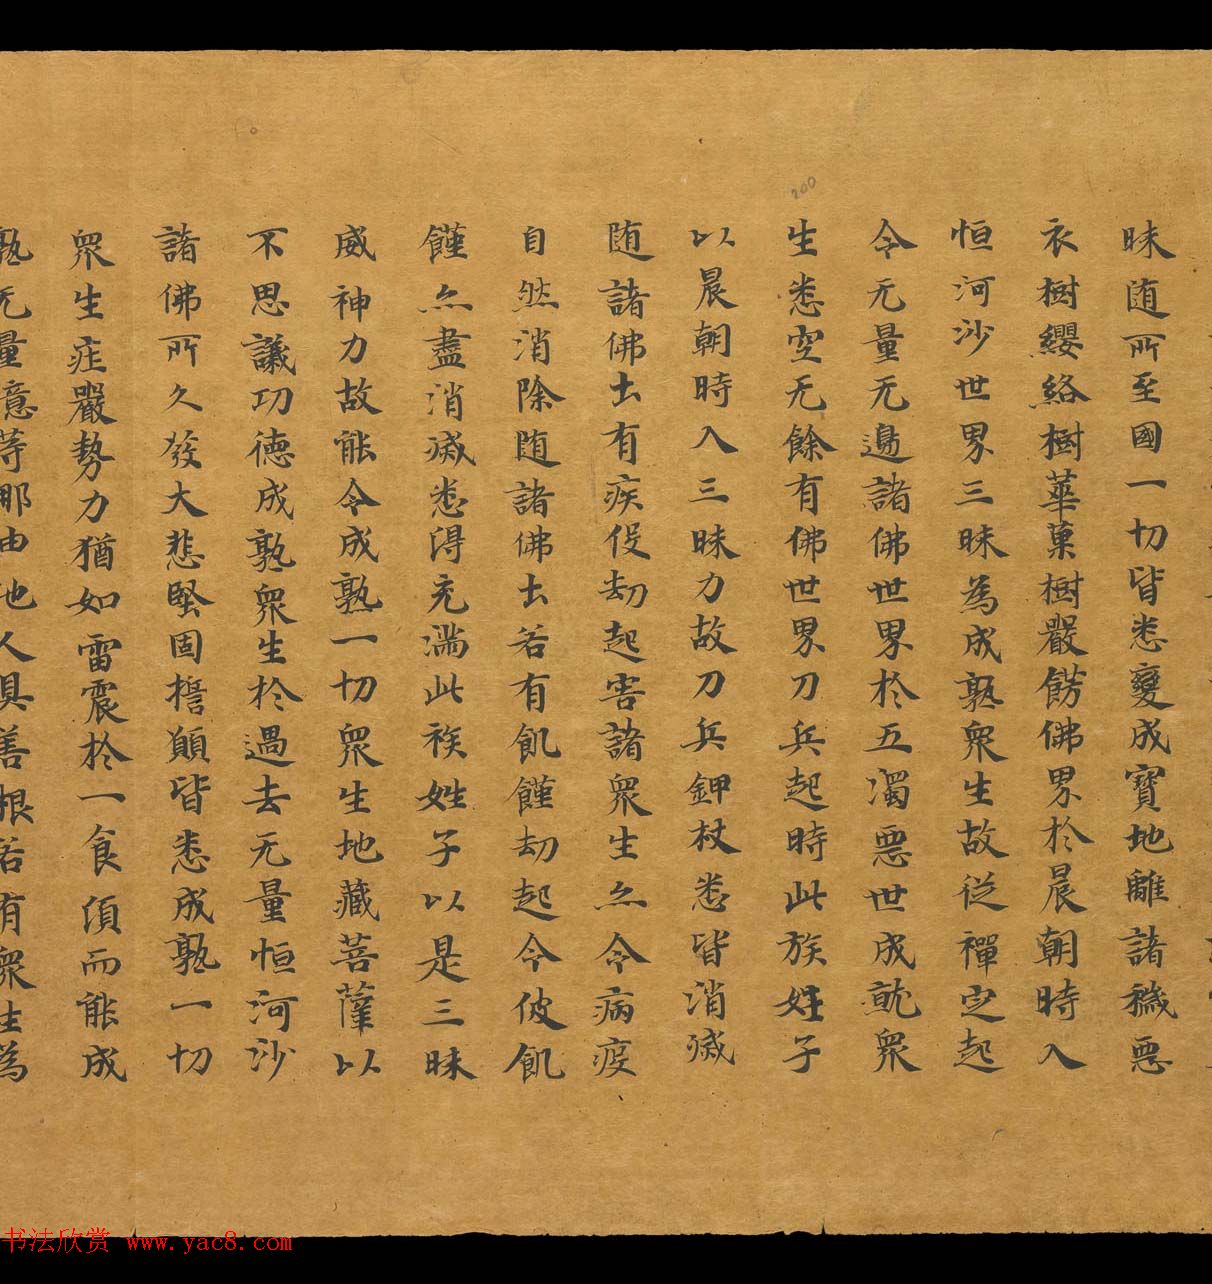 昧随所至國一切皆悉變成寶地離諸穢惡
衣樹纓絡樹華菓樹嚴餝佛界於晨朝時入
恒河沙世界三昧為成熟衆生故從禪定起
令无量无邊諸佛世界於五濁惡世成就衆
生悉空无餘有佛世界刀兵起時此族姓子
以晨朝時入三昧力故刀兵鉀杖悉皆消滅
随諸佛土有疾伇劫起害諸衆生亦令病疫
自然消除随諸佛土若有飢饉劫起令彼飢
饉亦盡消滅悉得充滿此族姓子以是三昧
威神力故能令成熟一切衆生地藏菩薩以
不思議功德成熟衆生於過去无量恒河沙
諸佛所久發大悲堅固擔願皆悉成熟一切
衆生症嚴勢力猶如雷震於一食湏而能成
熟无量意等那由地人具善根若有衆生為
书法欣赏 www.yac8.com